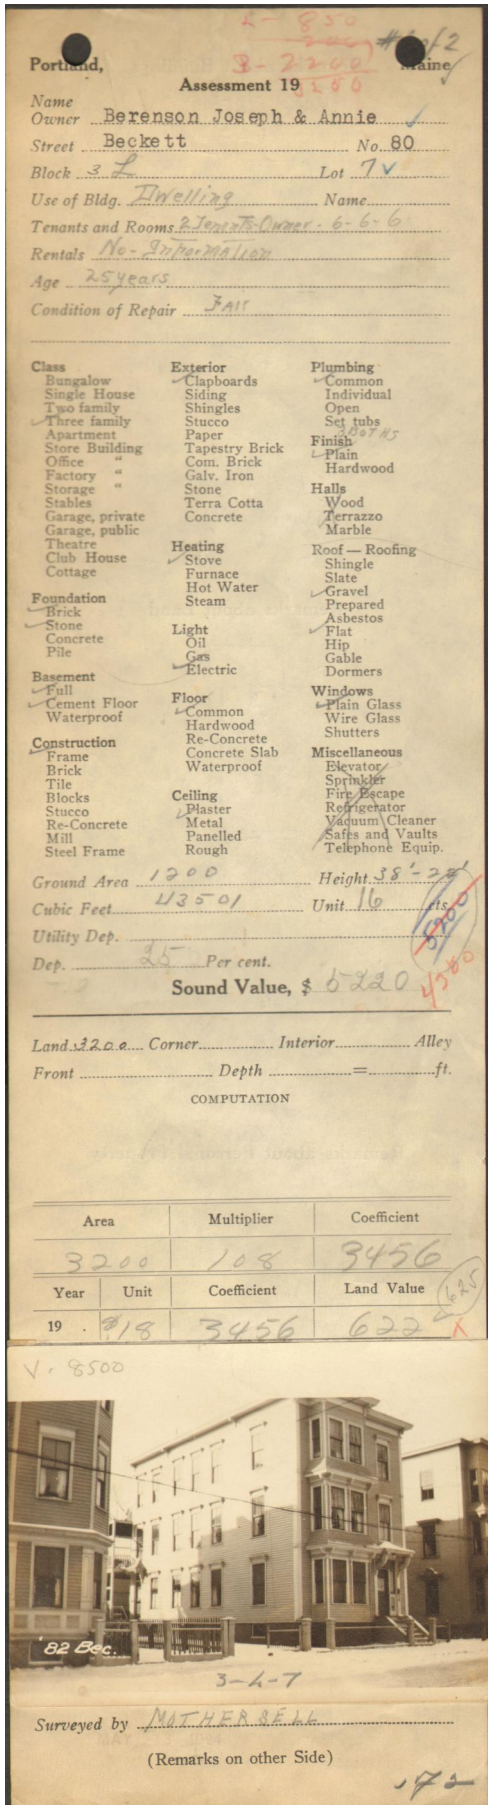 L - 850
B - 2200
#1 of 2
Portland, Maine
Assessment 19
Name
Owner Berenson Joseph & Annie
Street Beckett No. 80
Block 3 L Lot 7
Use of Bldg. Dwelling Name
Tenants and Rooms 2 Tenants-Owner - 6-6-6
Rentals No - Information
Age 25 years
Condition of Repair Fair
Class
Bungalow
Single House
Two family
Three family
Apartment
Store Building
Office "
Factory "
Storage "
Stables
Garage, private
Garage, public
Theatre
Club House
Cottage
Foundation
Brick
Stone
Concrete
Pile
Basement
Full
Cement Floor
Waterproof
Construction
Frame
Brick
Tile
Blocks
Stucco
Re-Concrete
Mill
Steel Frame
Exterior
Clapboards
Siding
Shingles
Stucco
Paper
Tapestry Brick
Com. Brick
Galv. Iron
Stone
Terra Cotta
Concrete
Heating
Stove
Furnace
Hot Water
Steam
Light
Oil
Gas
Electric
Floor
Common
Hardwood
Re-Concrete
Concrete Slab
Waterproof
Ceiling
Plaster
Metal
Panelled
Rough
Plumbing
Common
Individual
Open
Set tubs
Finish
Plain
Hardwood
Halls
Wood
Terrazzo
Marble
Roof — Roofing
Shingle
Slate
Gravel
Prepared
Asbestos
Flat
Hip
Gable
Dormers
Windows
Plain Glass
Wire Glass
Shutters
Miscellaneous
Elevator
Sprinkler
Fire Escape
Refrigerator
Vacuum Cleaner
Safes and Vaults
Telephone Equip.
Ground Area 1200 Height 38'-
Cubic Feet 43501 Unit 16 cts.
5200
Utility Dep.
Dep. 25 Per cent.
4500
Sound Value, $ 5220
Land 3200 Corner Interior Alley
Front Depth = ft.
COMPUTATION
Area Multiplier Coefficient
3200 108 3456
Year Unit Coefficient Land Value
625
19 . $18 3456 622 X
V. 8500
'82 Bec.
3-L-7
Surveyed by MOTHERSELL
(Remarks on other Side)
172